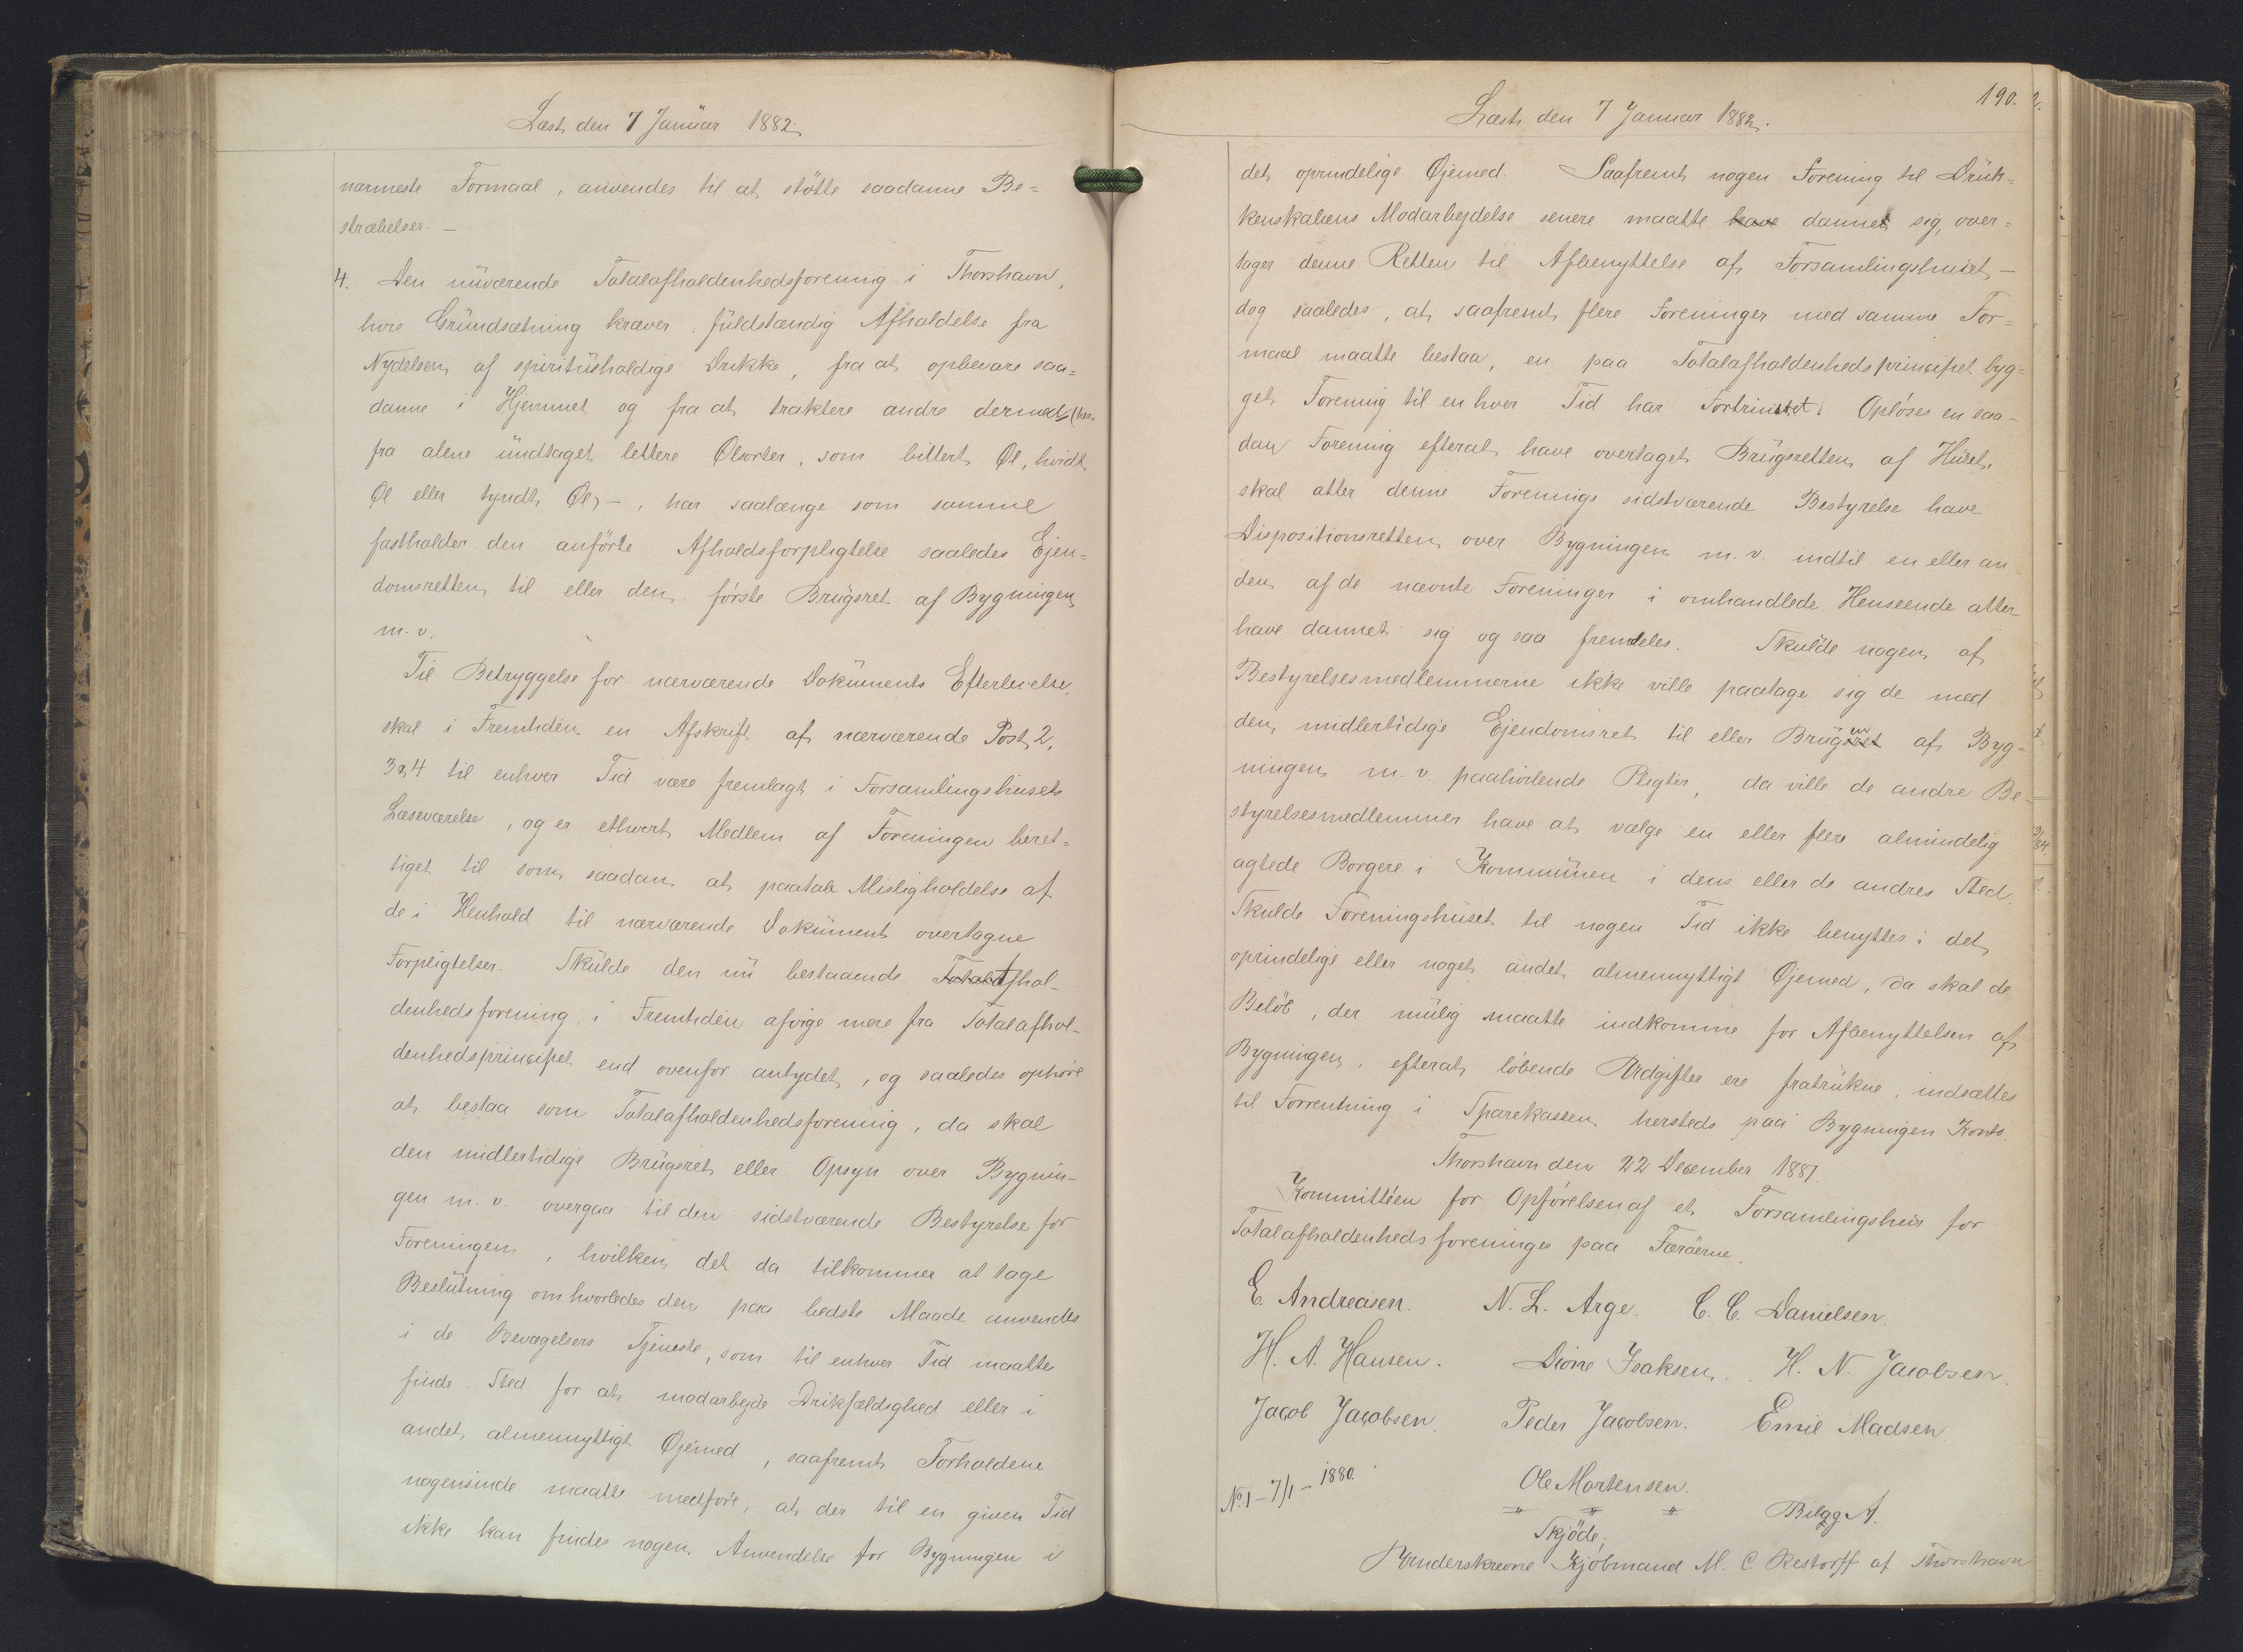 Læst den 7 Januar 1882.
nærmeste Formaal, anvendes til at støtte saadanne Be=
stræbelser. —
4. Den nuværende Totalafholdenhedsforening i Thorshavn,
hvis Grundsætning kræver: fuldstændig Afholdelse fra
Nydelsen af spiritusholdige Drikke, fra at opbevare saa=
danne i Hjemmet og fra at traktere andre dermed (her=
fra alene undtaget lettere Ølsorter, som bittert Øl, hvidt
Øl eller tyndt Øl) —, har saalænge som samme
fastholder den anførte Afholdsforpligtelse saaledes Ejen=
domsretten til eller den første Brugsret af Bygningen
m. v.
Til Betryggelse for nærværende Dokuments Efterlevelse,
skal i Fremtiden en Afskrift af nærværende Post 2,
3 & 4 til enhver Tid være fremlagt i Forsamlingshusets
Læseværelse, og er ethvert Medlem af Foreningen beret=
tiget til som saadan at paatale Misligholdelse af
de i Henhold til nærværende Dokument overtagne
Forpligtelser. Skulde den nu bestaaende Total Afhol-
denhedsforening i Fremtiden afvige mere fra Totalafhol-
denhedsprincipet end ovenfor antydet, og saaledes ophøre
at bestaa som Totalafholdenhedsforening, da skal
den midlertidige Brugsret eller Opsyn over Bygnin-
gen m. v. overgaa til den sidstværende Bestyrelse for
Foreningen, hvilken det da tilkommer at tage
Beslutning om hvorledes den paa bedste Maade anvendes
i de Bevægelsers Tjeneste, som til enhver Tid maatte
finde Sted for at modarbejde Drikfældighed eller i
andet almennyttigt Øjemed, saafremt Forholdene
nogensinde maatte medføre, at der til en given Tid
ikke kan findes nogen Anvendelse for Bygningen i
190.
Læst den 7 Januar 1882.
det oprindelige Øjemed. Saafremt nogen Forening til Druk=
kenskabens Modarbejdelse senere maatte have dannet sig, over=
tager denne Retten til Afbenyttelse af Forsamlingshuset —
dog saaledes, at saafremt flere Foreninger med samme For=
maal maatte bestaa, en paa Totalafholdenhedsprincipet byg=
get Forening til en hver Tid har Fortrinet. Opløses en saa-
dan Forening efterat have overtaget Brugsretten af Huset,
skal atter denne Forenings sidstværende Bestyrelse have
Dispositionsretten over Bygningen m. v. indtil en eller an
den af de nævnte Foreninger i omhandlede Henseende atter
have dannet sig og saa fremdeles. Skulde nogen af
Bestyrelsesmedlemmerne ikke ville paatage sig de med
den midlertidige Ejendomsret til eller Brugen af Byg=
ningen m. v. paahvilende Pligter, da ville de andre Be=
styrelsesmedlemmer have at vælge en eller flere almindelig
agtede Borgere i Kommunen i dens eller de andres Sted.
Skulde Foreningshuset til nogen Tid ikke benyttes i det
oprindelige eller noget andet almennyttigt Øjemed, da skal de
Beløb, der mulig maatte indkomme for Afbenyttelsen af
Bygningen, efterat løbende Udgifter ere fratrukne, indsættes
til Forrentning i Sparekassen hersteds paa Bygningen Konto.
Thorshavn den 22 December 1881.
Kommittéen for Opførelsen af et Forsamlingshus for
Totalafholdenhedsforeninger paa Færøerne.
E. Andreasen. N. L. Arge. C. C. Danielsen.
H. A. Hansen. Dione Isaksen. H. N. Jacobsen.
Jacob Jacobsen. Peder Jacobsen. Emil Madsen
Ole Mortensen.
No. 1 – 7/1 – 1880.
" " " Bilag A.
Skjøde,
Underskrevne Kjøbmand M. C. Restorff af Thorshavn